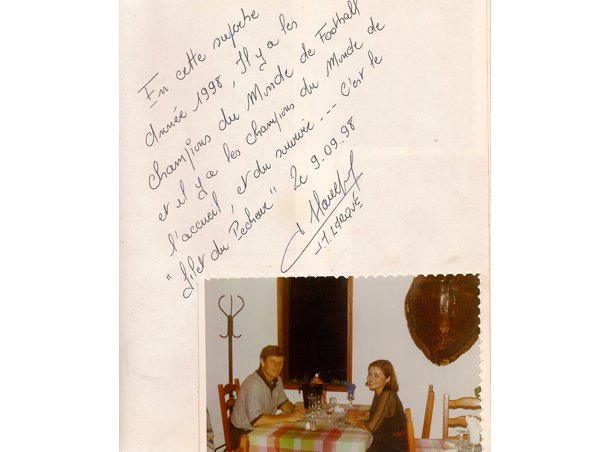 En cette superbe
année 1998, Il y a les
champions du Monde de Football
et il y a les champions du Monde de
l'accueil, et du sourire --- C'est le
"Filet du Pecheur" Le 9.09.98
J.M LARQUÉ